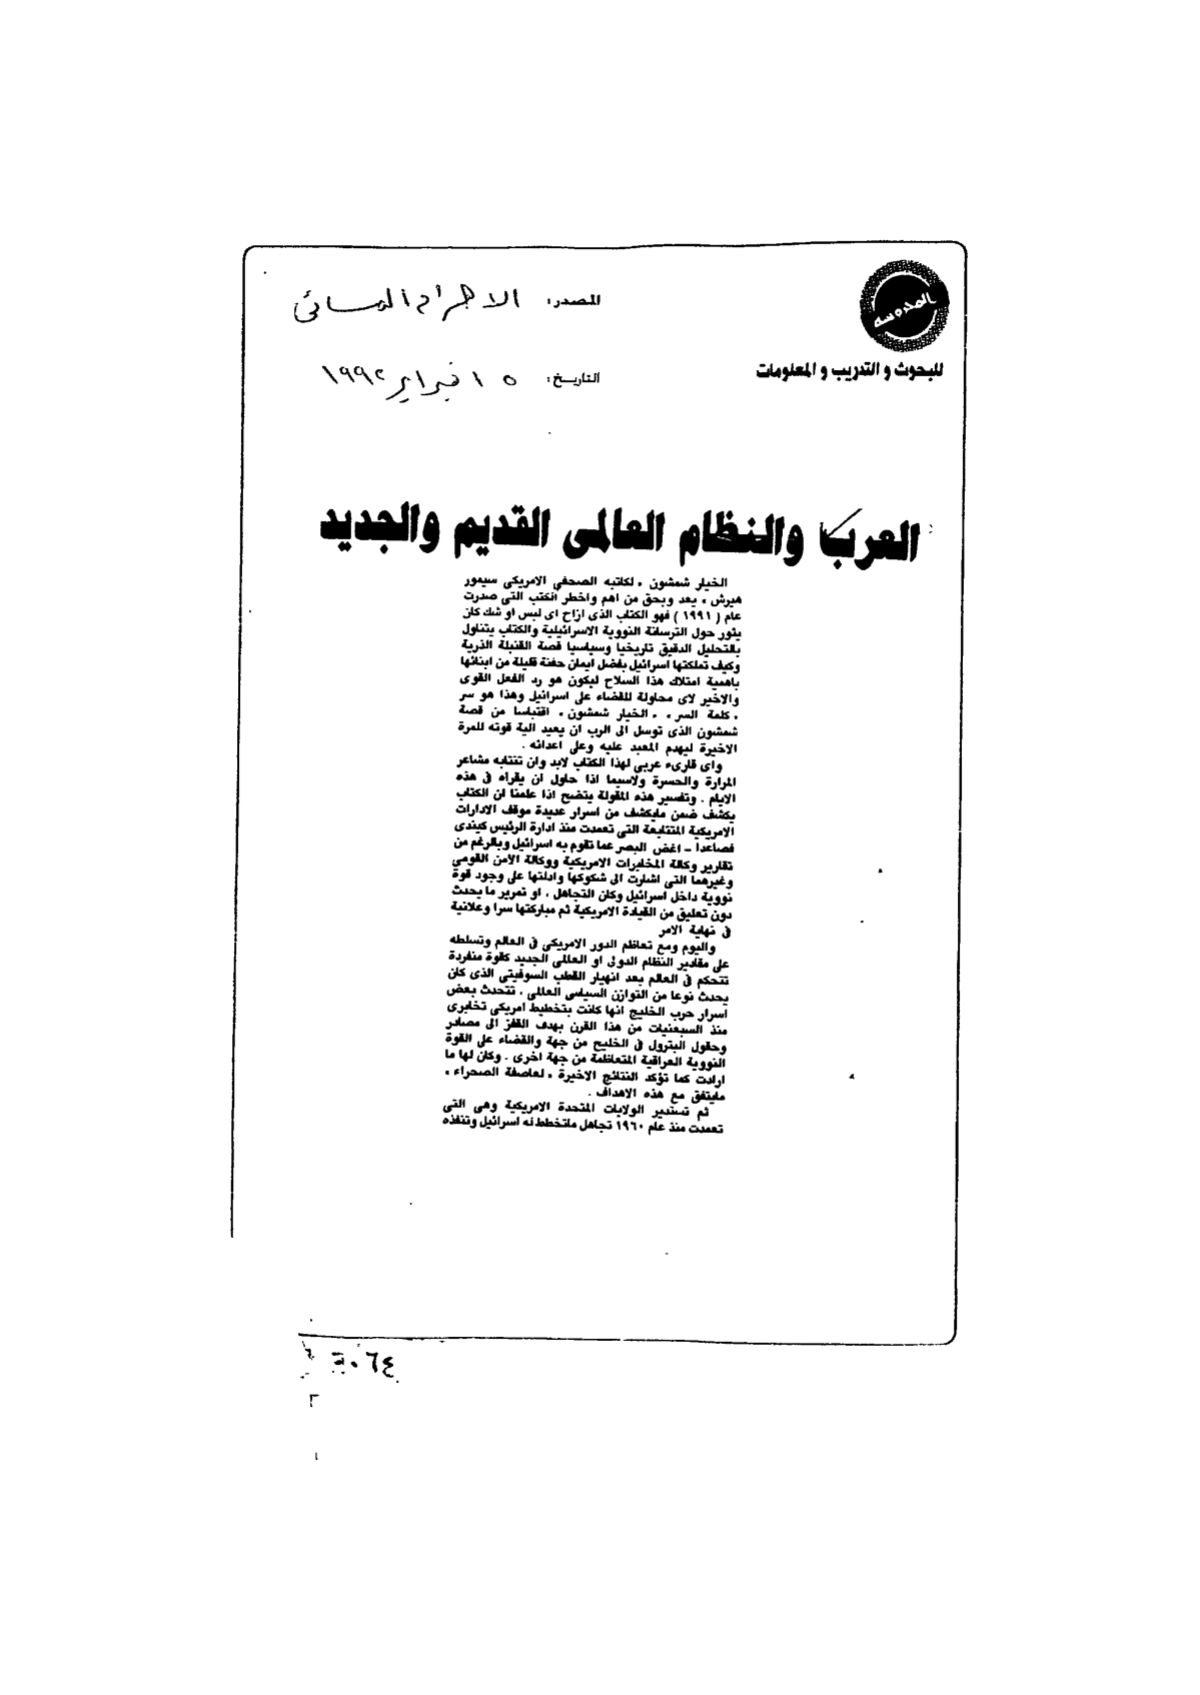 المحروسه
للبحوث و التدريب و المعلومات
المصدر: الاهرام المسائى
التاريخ: ١٥ فبراير ١٩٩٢
العرب والنظام العالمى القديم والجديد
الخيار شمشون ، لكاتبه الصحفى الامريكى سيمور
هيرش ، يعد وبحق من اهم واخطر الكتب التى صدرت
عام ( ١٩٩١ ) فهو الكتاب الذى ازاح اى لبس او شك كان
يثور حول الترسانة النووية الاسرائيلية والكتاب يتناول
بالتحليل الدقيق تاريخيا وسياسيا قصة القنبلة الذرية
وكيف تملكتها اسرائيل بفضل ايمان حفنة قليلة من ابنائها
باهمية امتلاك هذا السلاح ليكون هو رد الفعل القوى
والاخير لاى محاولة للقضاء على اسرائيل وهذا هو سر
، كلمة السر ، ، الخيار شمشون ، اقتباسا من قصة
شمشون الذى توسل الى الرب ان يعيد الية قوته للمرة
الاخيرة ليهدم المعبد عليه وعلى اعدائه .
واى قارىء عربى لهذا الكتاب لابد وان تنتابه مشاعر
المرارة والحسرة ولاسيما اذا حاول ان يقراه فى هذه
الايام . وتفسير هذه المقولة يتضح اذا علمنا ان الكتاب
يكشف ضمن مايكشف من اسرار عديدة موقف الادارات
الامريكية المتتابعة التى تعمدت منذ ادارة الرئيس كيندى
فصاعدا - اغض البصر عما تقوم به اسرائيل وبالرغم من
تقارير وكالة المخابرات الامريكية ووكالة الامن القومى
وغيرهما التى اشارت الى شكوكها وادلتها على وجود قوة
نووية داخل اسرائيل وكان التجاهل ، او تمرير ما يحدث
دون تعليق من القيادة الامريكية ثم مباركتها سرا وعلانية
فى نهاية الامر
واليوم ومع تعاظم الدور الامريكى فى العالم وتسلطه
على مقادير النظام الدولى او العالمى الجديد كقوة منفردة
تتحكم فى العالم بعد انهيار القطب السوفيتى الذى كان
يحدث نوعا من التوازن السياسى العالمى ، تتحدث بعض
اسرار حرب الخليج انها كانت بتخطيط امريكى تخابرى
منذ السبعنيات من هذا القرن بهدف القفز الى مصادر
وحقول البترول فى الخليج من جهة والقضاء على القوة
النووية العراقية المتعاظمة من جهة اخرى . وكان لها ما
ارادت كما تؤكد النتائج الاخيرة ، لعاصفة الصحراء ،
مايتفق مع هذه الاهداف .
ثم تستدير الولايات المتحدة الامريكية وهى التى
تعمدت منذ عام ١٩٦٠ تجاهل ماتخطط له اسرائيل وتنفذه